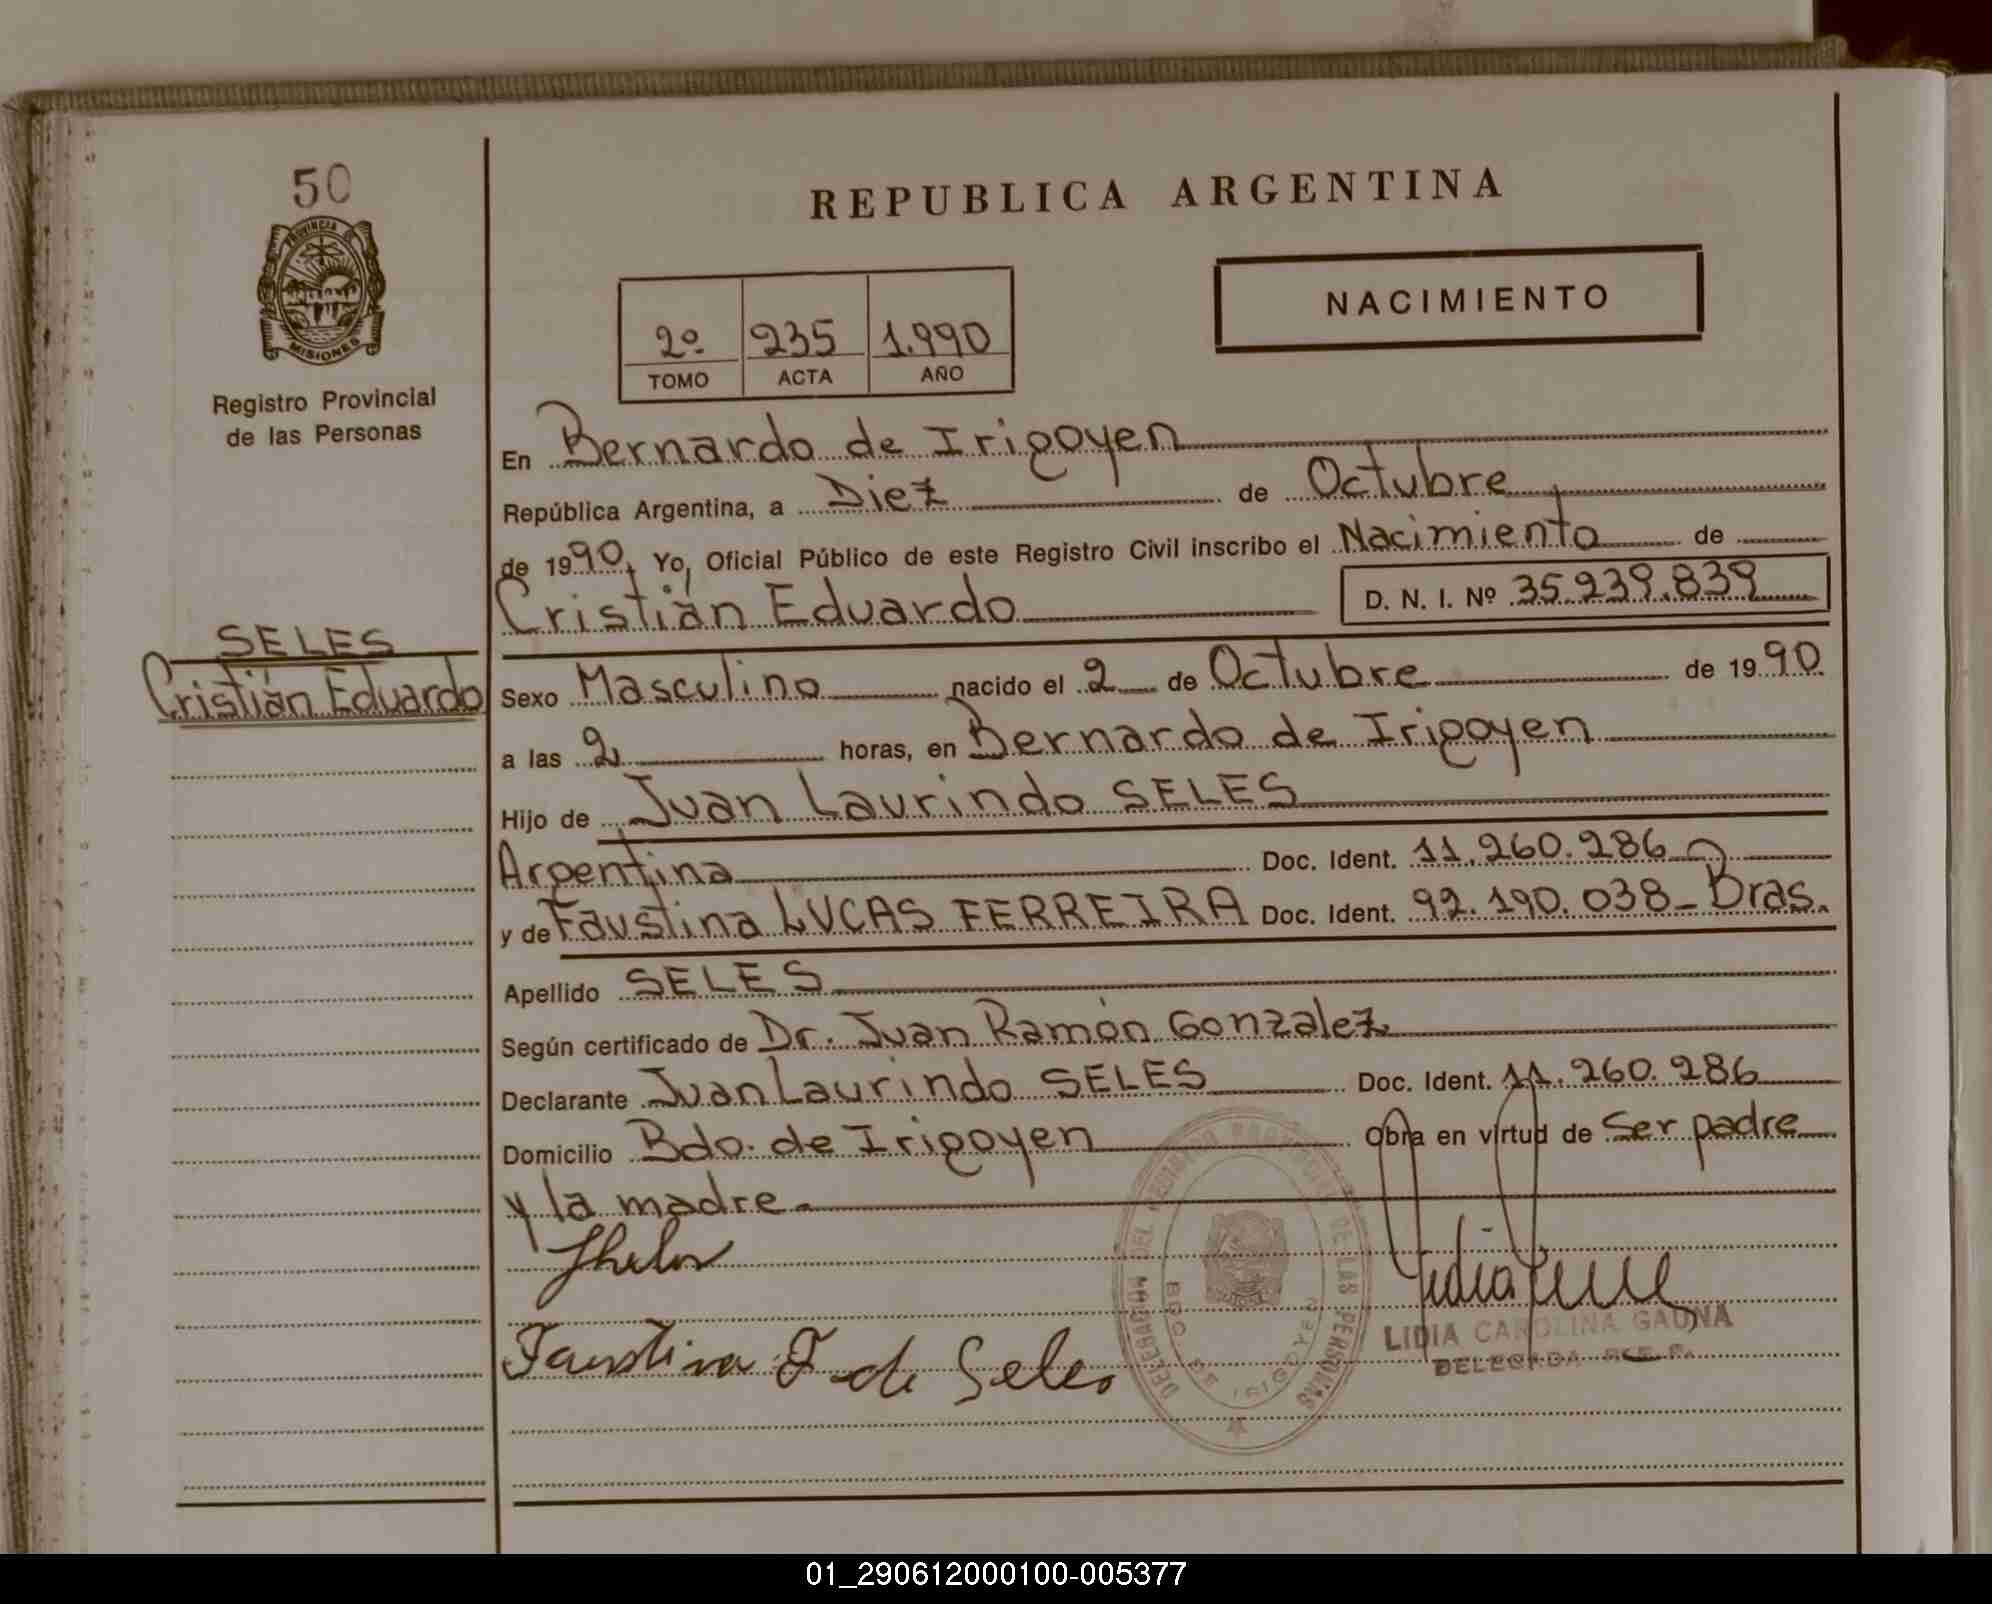 50
PROVINCIA DE
MISIONES
Registro Provincial
de las Personas
SELES
Cristián Eduardo
REPUBLICA ARGENTINA
NACIMIENTO
2º 235 1.990
TOMO ACTA AÑO
En Bernardo de Irigoyen
República Argentina, a Diez de Octubre
de 1990, Yo, Oficial Público de este Registro Civil inscribo el Nacimiento de
Cristián Eduardo D. N. I. Nº 35.239.839
Sexo Masculino nacido el 2 de Octubre de 1990
a las 2 horas, en Bernardo de Irigoyen
Hijo de Juan Laurindo SELES
Argentina Doc. Ident. 11.260.286
y de Faustina LUCAS FERREIRA Doc. Ident. 92.190.038_Bras.
Apellido SELES
Según certificado de Dr. Juan Ramón Gonzalez
Declarante Juan Laurindo SELES Doc. Ident. 11.260.286
Domicilio Bdo. de Irigoyen Obra en virtud de Ser padre
y la madre.
DELEGACION DEL REGISTRO PROVINCIAL DE LAS PERSONAS
BDO. DE IRIGOYEN
Faustina F. de Seles
LIDIA CAROLINA GAUNA
DELEGADA
01_290612000100-005377